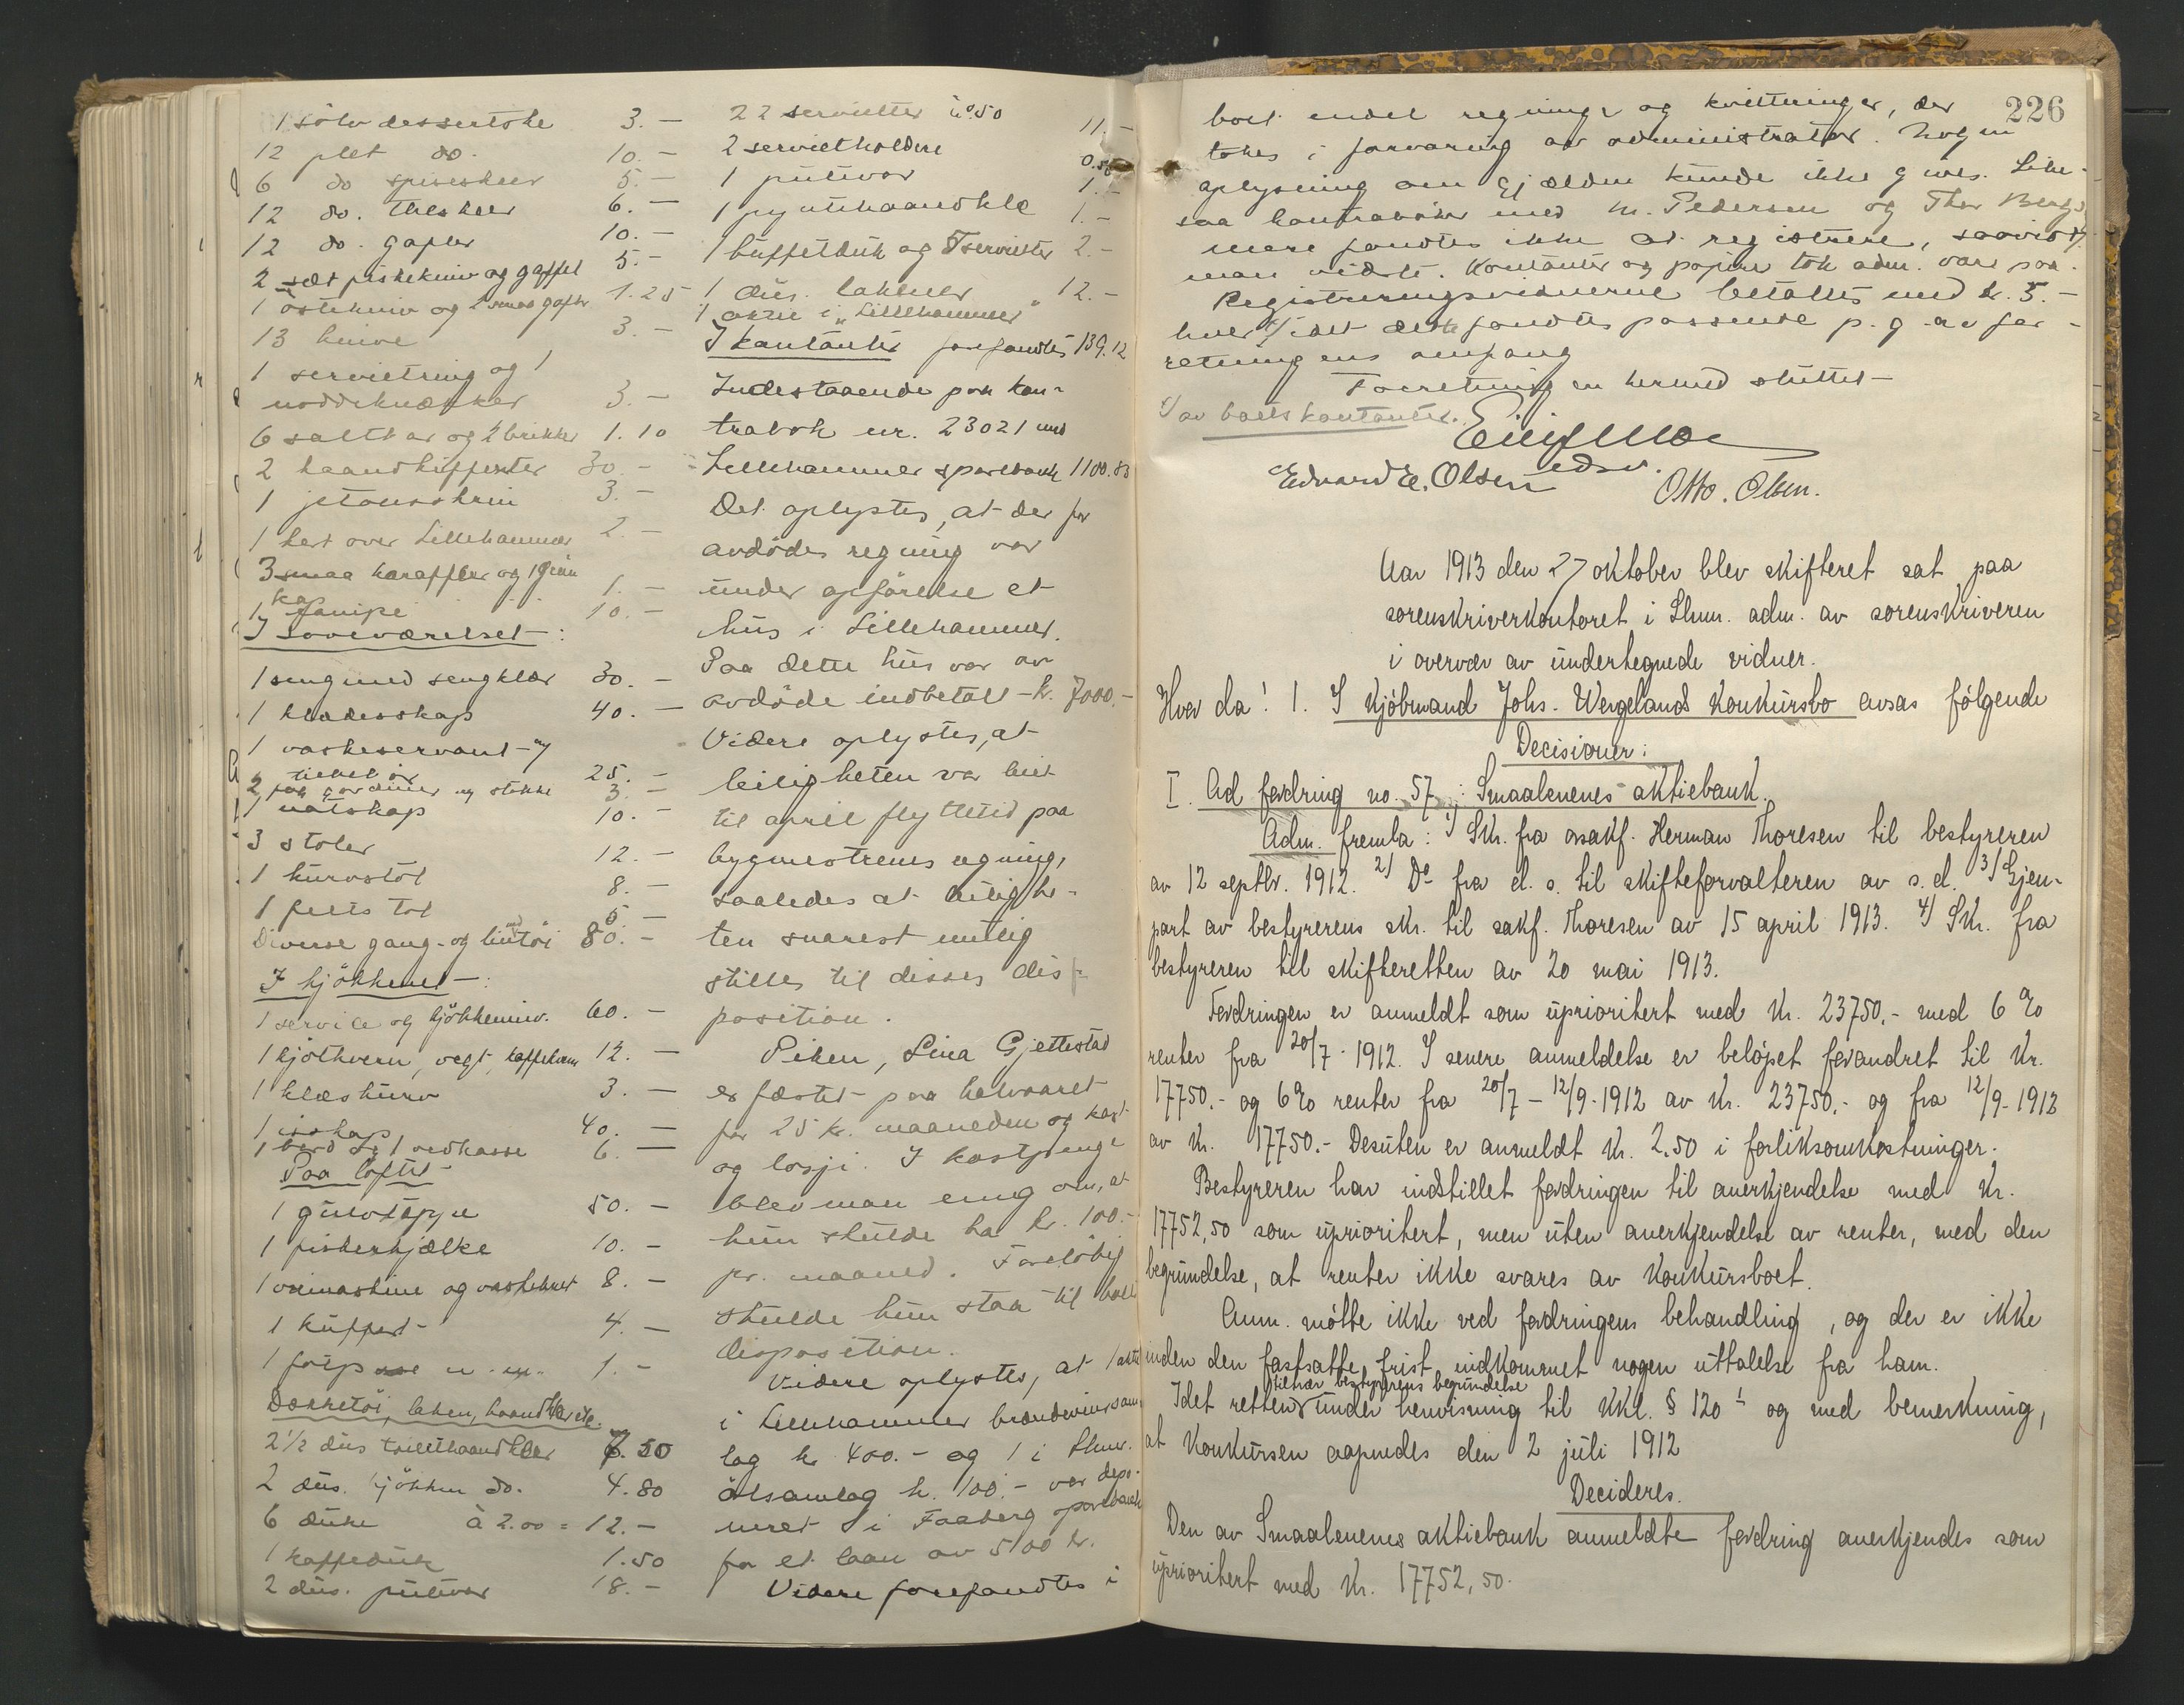 1 sölv dessertske 3.-
12 plet do. 10.-
6 do spiseskeer 5.-
12 do. theskeer 6.-
12 do. gafler 10.-
2 sæt fiskekniv og gaffel 5.-
1 ostekniv og 2 smaa gafler 1.25
13 knive 3.-
1 serviettring og 1
nøddeknækker 3.-
6 saltkar og 2 brikker 1.10
2 haandkufferter 30.-
1 jetonskrin 3.-
1 kart over Lillehammer 2.-
3 smaa karafler og 1
1.-
1 10.-
I soveværelset:
1 seng med sengklær 30.-
1 klædesskap 40.-
1 vaskeservant m/
tilbehör 25.-
2 par gardiner og stokke 3.-
1 natskap 10.-
3 stoler 12.-
1 kurvstol 8.-
1 5.-
Diverse gang- og lintöi 80.-
I kjökkenet:
1 service og kjökkeninv. 60.-
1 kjötkvern, vegt, kaffekvern 12.-
1 klæskurv 3.-
1 isskap 40.-
1 bord og 1 vedkasse 6.-
Paa loftet
1 gulvtæppe 50.-
1 fiskerkjælke 10.-
1 vrimaskine og vaskebret 8.-
1 kuffert 4.-
1 1.-
Dækketöi, laken, haandklær etc.
2 1/2 dus toiletthaandklær 7.50
2 dus. kjökken do. 4.80
6 duke à 2.00 = 12.-
1 kaffeduk 1.50
2 dus. putevar 18.-
22 servietter à 0.50 11.-
2 servietholdere 0.50
1 putevar 1.-
1 pyntehaandkle 1.-
1 buffetduk og 7 servietter 2.-
1 dus. lakener 12.-
1 aktie i "Lillehammer"
I kontanter forefandtes 139.12
Indestaaende paa kon-
trabok nr. 23021 med
Lillehammer sparebank 1100.83
Det oplystes, at der for
avdödes regning var
under opförelse et
hus i Lillehammer.
Paa dette hus var av
avdöde indbetalt kr. 7000.-
Videre oplystes, at
leiligheten var leiet
til april flyttetid paa
bygmestrenes regning,
saaledes at leilighe-
ten snarest mulig
stilles til disses dis-
position.
Piken, Lina Gjettestad
er fæstet paa halvaaret
for 25 kr. maaneden og kost
og losji. I kostpenge
blev man enig om, at
hun skulde ha kr. 100.-
pr. maaned. Forelöbig
skulde hun staa til boets
disposition.
Videre oplystes, at 1 aktie
i Lillehammer brændevinssam-
lag kr 400.- og 1 i Lhmr.
ölsamlag kr. 100.- var depo-
neret i Faaberg sparebank
for et laan av 5100 kr.
Videre forefandtes i
226
boet endel regninger og kvitteringer, der
tokes i forvaring av administrator. Nogen
oplysning om gjælden kunde ikke gives. Like-
saa kontraböker med M. Pedersen og Thor Berg.
mere fandtes ikke at registrere, saavidt
man vidste. Kontanter og papirer tok adm. vare paa.
Registreringsvidnerne betaltes med kr. 5.-
hver x) idet dette fandtes passende p. g. av for-
retningens omfang
Forretningen hermed sluttet
x) av boets kontanter.
Edvard E. Olsen Otto. Olsen.
Aar 1913 den 27 oktober blev skifteret sat paa
sorenskriverkontoret i Lhmr. adm. av sorenskriveren
i overvær av undertegnede vidner.
Hvor da: 1. I Kjöbmand Johs. Wergelands Konkursbo avsas fölgende
Decisioner:
I. Ad fordring no. 57: Smaalenenes aktiebank.
Adm. fremla: 1) Skr. fra o.sakf. Herman Thoresen til bestyreren
av 12 septbr. 1912. 2) Do fra d. s. til skifteforvalteren av s. d. 3) Gjen-
part av bestyrerens skr. til sakf. Thoresen av 15 april 1913. 4) Skr. fra
bestyreren til skifteretten av 20 mai 1913.
Fordringen er anmeldt som uprioritert med Kr. 23750,- med 6 %
renter fra 20/7 1912. I senere anmeldelse er belöpet forandret til Kr.
17750.- og 6 % renter fra 20/7 - 12/9-1912 av Kr. 23750,- og fra 12/9-1912
av Kr. 17750.- Desuten er anmeldt Kr. 2.50 i forliksomkostninger.
Bestyreren har indstillet fordringen til anerkjendelse med Kr.
17752,50 som uprioritert, men uten anerkjendelse av renter, med den
begrundelse, at renter ikke svares av Konkursboet.
Anm. mötte ikke ved fordringens behandling, og der er ikke
inden den fastsatte frist indkommet nogen uttalelse fra ham.
tiltrær bestyrerens begrundelse
Idet retten under henvisning til KKl. § 120 1 og med bemerkning,
at Konkursen aapnedes den 2 juli 1912
Decideres.
Den av Smaalenenes aktiebank anmeldte fordring anerkjendes som
uprioritert med Kr. 17752,50.